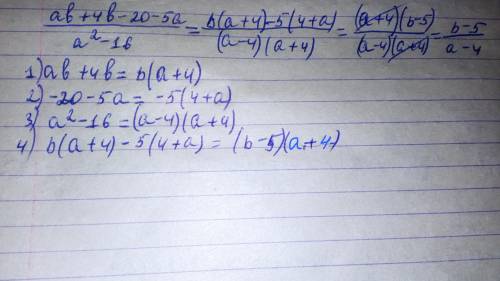 (ab + 4b - 20 - 5a)/(a² - 16) = (b(a+4) - 5(4+a))/((a-4)(a+4)) = ((a+4)(b-5))/((a-4)(a+4)) = (b-5)/(a-4)
1) ab + 4b = b(a+4)
2) -20 - 5a = -5(4+a)
3) a² - 16 = (a-4)(a+4)
4) b(a+4) - 5(4+a) = (b-5)(a+4)